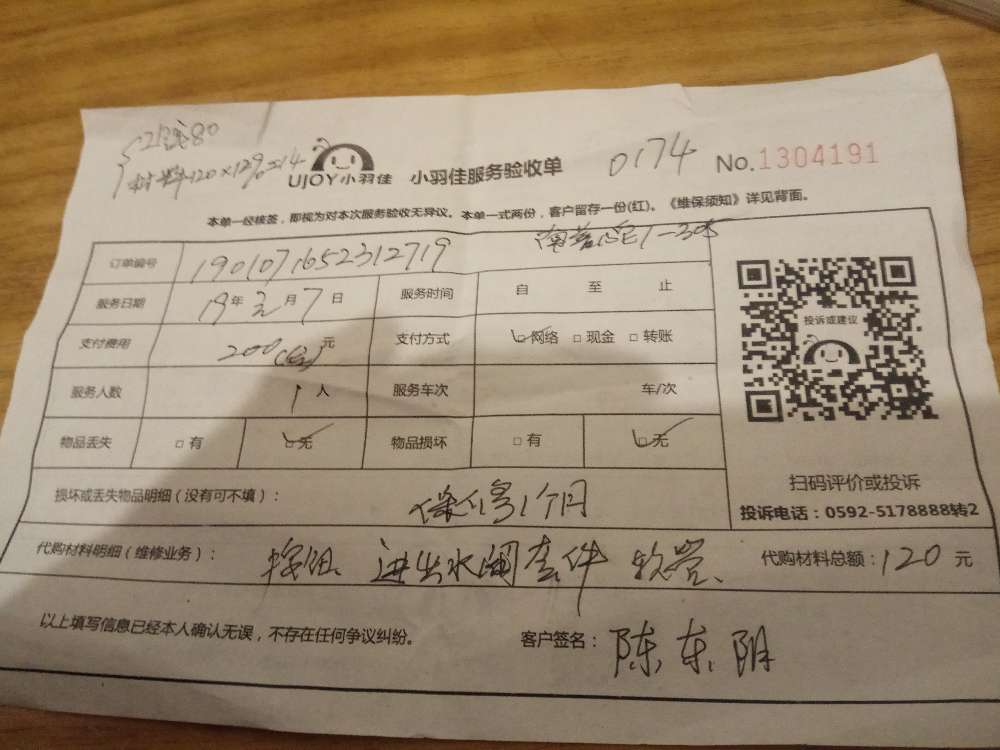 工钱80
材料120×12%=14
UJOY小羽佳 小羽佳服务验收单 0174 No.1304191
本单一经核签，即视为对本次服务验收无异议。本单一式两份，客户留存一份(红)。《维保须知》详见背面。
订单编号 1901071652312719 1-305
服务日期 19年 月7日 服务时间 自 至 止
支付费用 200 元 支付方式 ☑网络 □现金 □转账
服务人数 1人 服务车次 车/次
物品丢失 □有 ☑无 物品损坏 □有 ☑无
损坏或丢失物品明细（没有可不填）： 保修1个月
代购材料明细（维修业务）： 进出水阀套件 软管、 代购材料总额：120元
以上填写信息已经本人确认无误，不存在任何争议纠纷。 客户签名：陈东阴
投诉或建议
扫码评价或投诉
投诉电话：0592-5178888转2